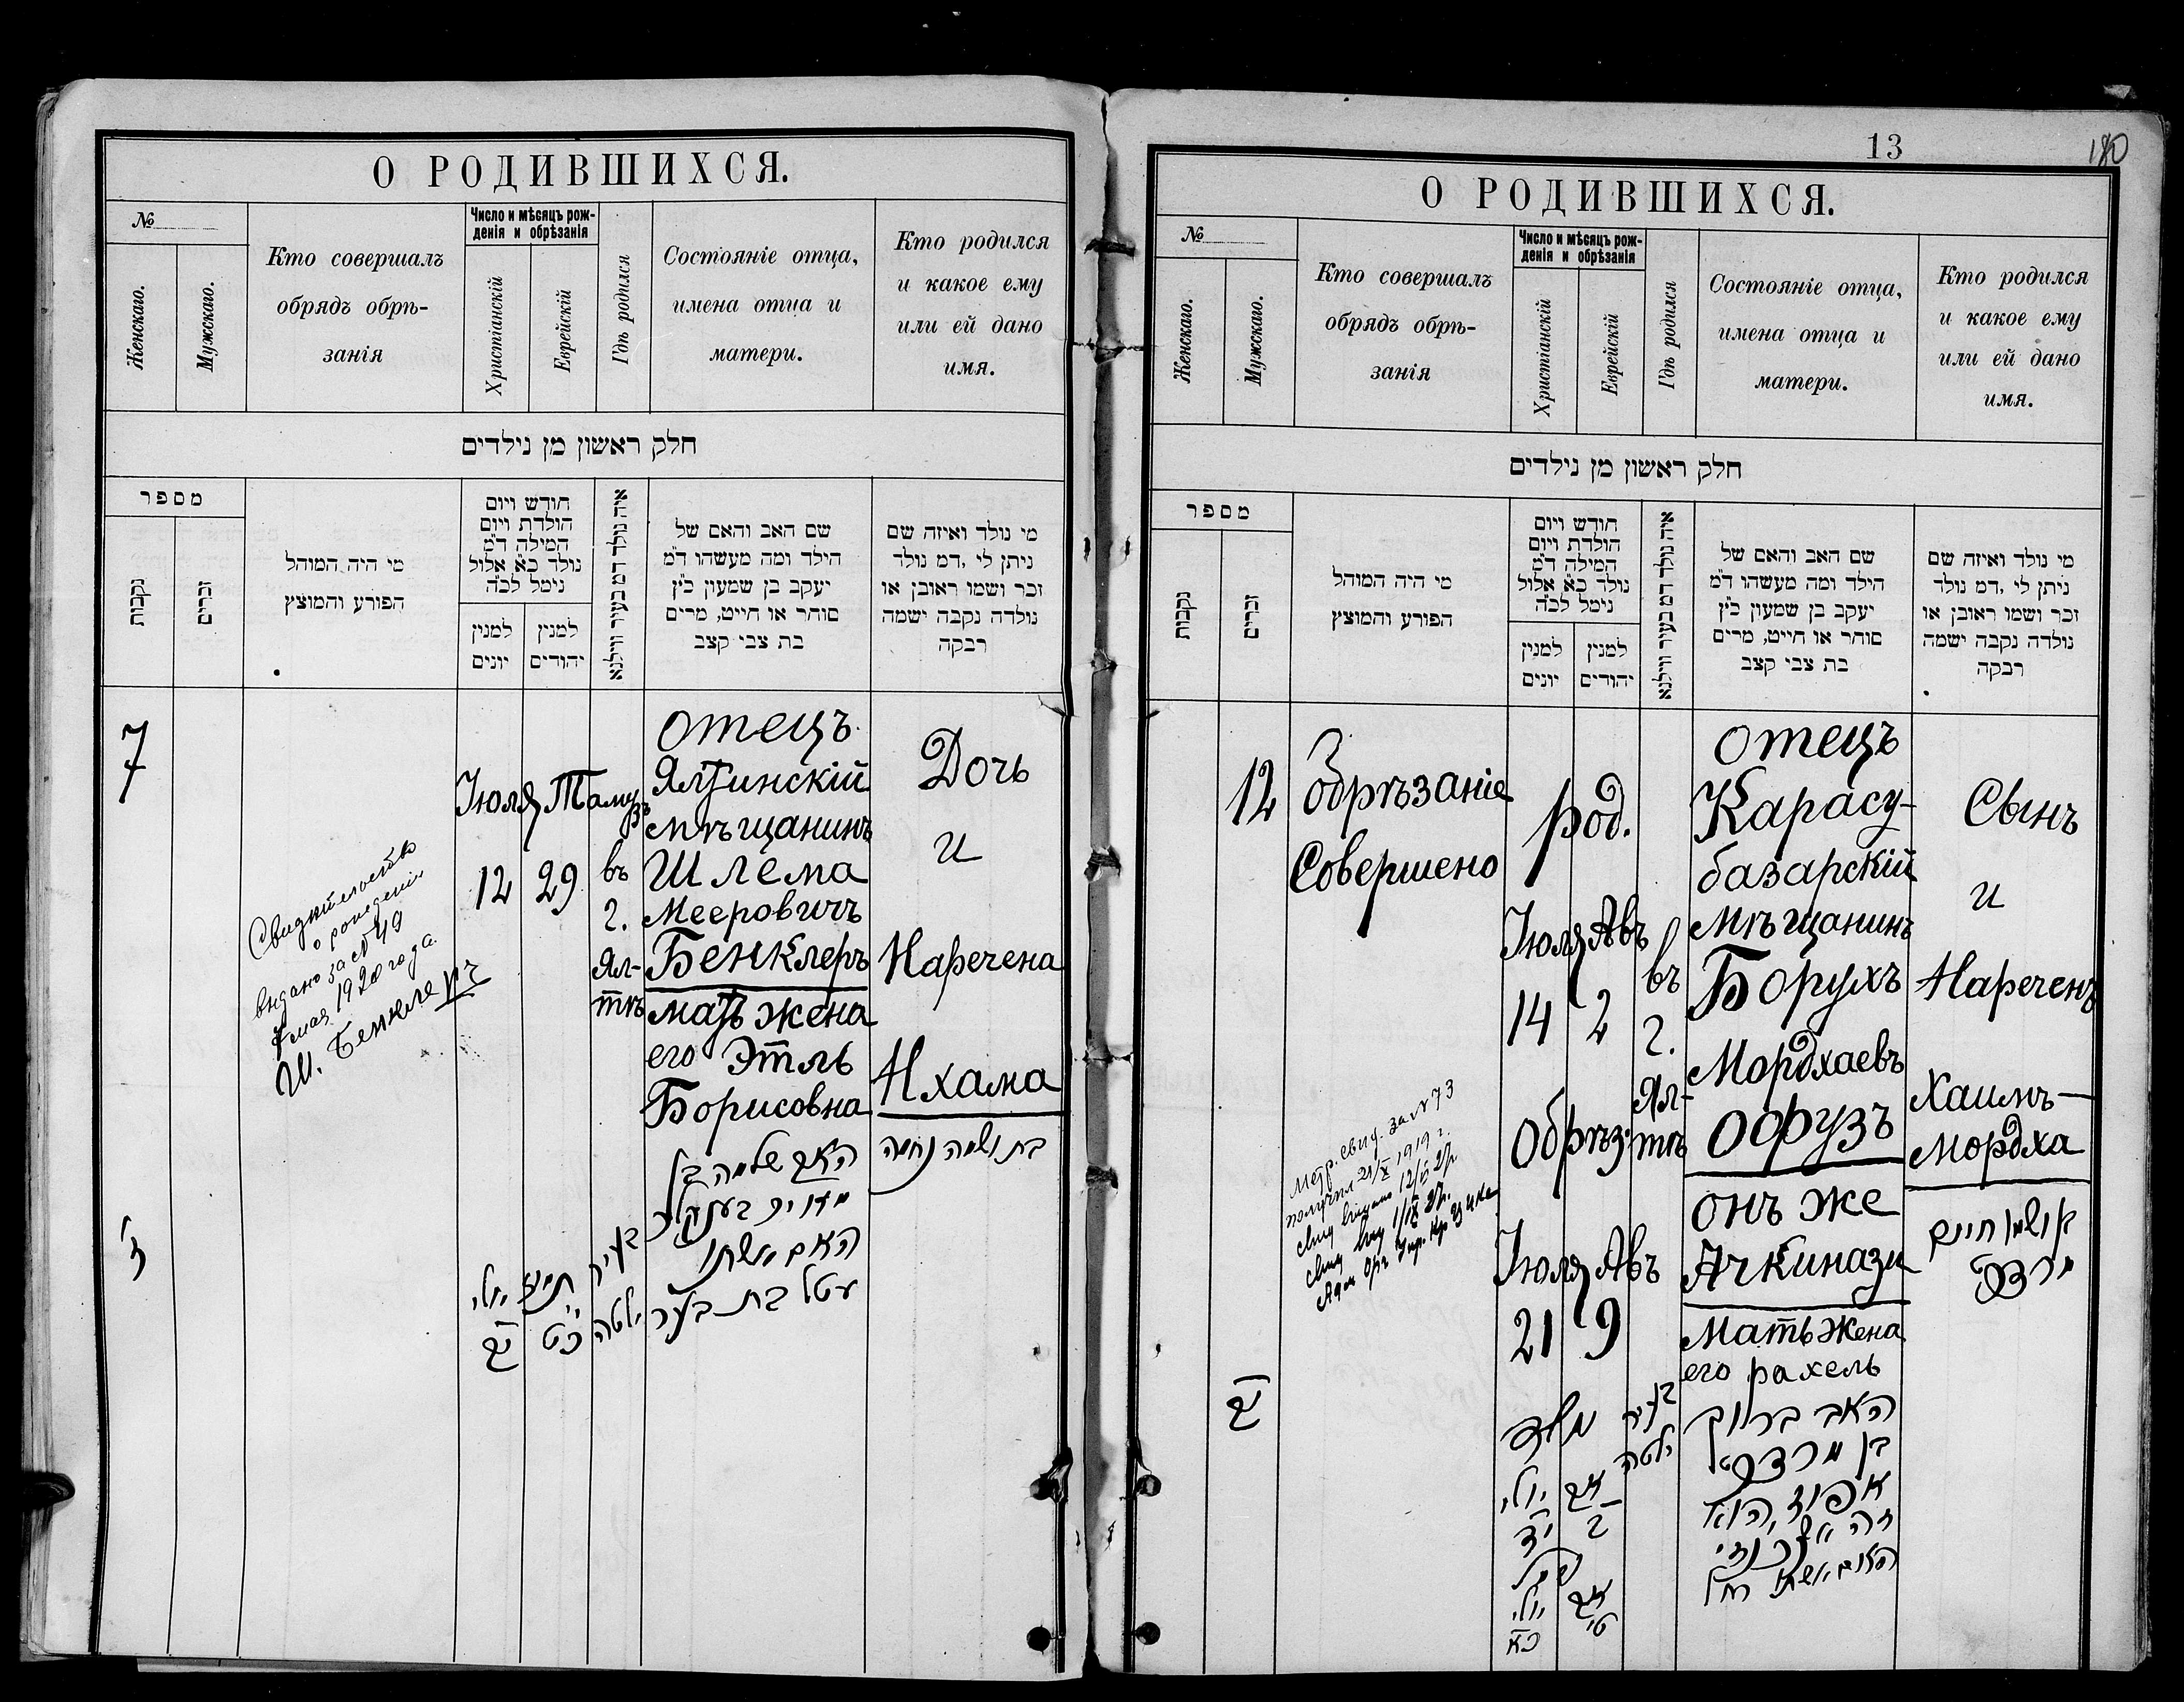 О РОДИВШИХСЯ.
№
Женскаго.
Мужскаго.
Кто совершалъ
обрядъ обрѣ-
занія
Число и мѣсяцъ рож-
денія и обрѣзанія
Христіанскій
Еврейскій
Гдѣ родился
Состояніе отца,
имена отца и
матери.
Кто родился
и какое ему
или ей дано
имя.
חלק ראשון מן נילדים
מספר
נקבות
זכרים
מי היה המוהל
הפורע והמוצץ
חודש ויום
הולדת ויום
המילה ד״מ
נולד כ״א אלול
נימל לכ״ה
למנין
יונים
למנין
יהודים
איה נולד דמ בעיר ווילנא
שם האב והאם של
הילד ומה מעשהו ד״מ
יעקב בן שמעון כ״ץ
סוחר או חייט, מרים
בת צבי קצב
מי נולד ואיזה שם
ניתן לי ,דמ נולד
זכר ושמו ראובן או
נולדה נקבה ישמה
רבקה
7
Свидѣтельство
о рождении
выдано за № 49
7 мая 1920 года.
Ш. Бенклеръ
Іюля
12
Тамузъ
29
въ
г.
Ял-
тѣ
отецъ
Ялтинскій
мѣщанинъ
Шлема
Мееровичъ
Бенклеръ
мать жена
его Этль
Борисовна
האב שלמה בן
מאיר בענקלר
האם אשתו
עטל בת בער
Дочь
и
Наречена
Нхама
בת ושמה נחמה
ז׳
יולי
י״ב
תמוז
כ״ט
בעיר
ילטה
13
180
О РОДИВШИХСЯ.
№
Женскаго.
Мужскаго.
Кто совершалъ
обрядъ обрѣ-
занія
Число и мѣсяцъ рож-
денія и обрѣзанія
Христіанскій
Еврейскій
Гдѣ родился
Состояніе отца,
имена отца и
матери.
Кто родился
и какое ему
или ей дано
имя.
חלק ראשון מן נילדים
מספר
נקבות
זכרים
מי היה המוהל
הפורע והמוצץ
חודש ויום
הולדת ויום
המילה ד״מ
נולד כ״א אלול
נימל לכ״ה
למנין
יונים
למנין
יהודים
איה נולד דמ בעיר ווילנא
שם האב והאם של
הילד ומה מעשהו ד״מ
יעקב בן שמעון כ״ץ
סוחר או חייט, מרים
בת צבי קצב
מי נולד ואיזה שם
ניתן לי ,דמ נולד
זכר ושמו ראובן או
נולדה נקבה ישמה
רבקה
12
Обрѣзаніе
Совершено
Метр. свид. за № 73
получил 21/X 1919 г.
род.
Іюля Авъ
14 2
Обрѣз.
Іюля Авъ
21 9
въ
г.
Ял-
тѣ
отецъ
Карасу-
базарскій
мѣщанинъ
Борухъ
Мордхаевъ
Офузъ
онъ же
Ачкинази
Мать жена
его рахель
האב ברוך
בן מרדכי
אפוז, הוא
האם אשתו רחל
Сынъ
и
Нареченъ
Хаимъ-
Мордха
בן ושמו חיים
מרדכי
י״ב
נולד
בעיר
ילטה
יולי אב
י״ד ב
יולי אב
כ״א ט׳